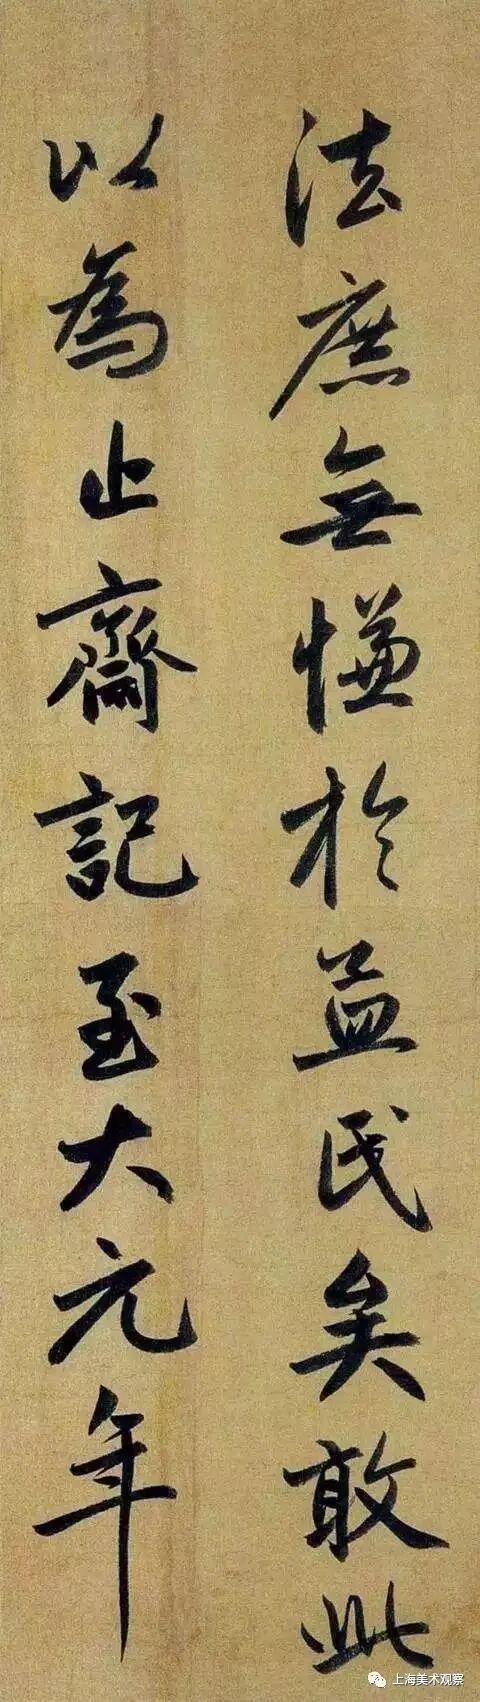 法庶無慊於益民矣敢此
以為止齋記至大元年
上海美术观察